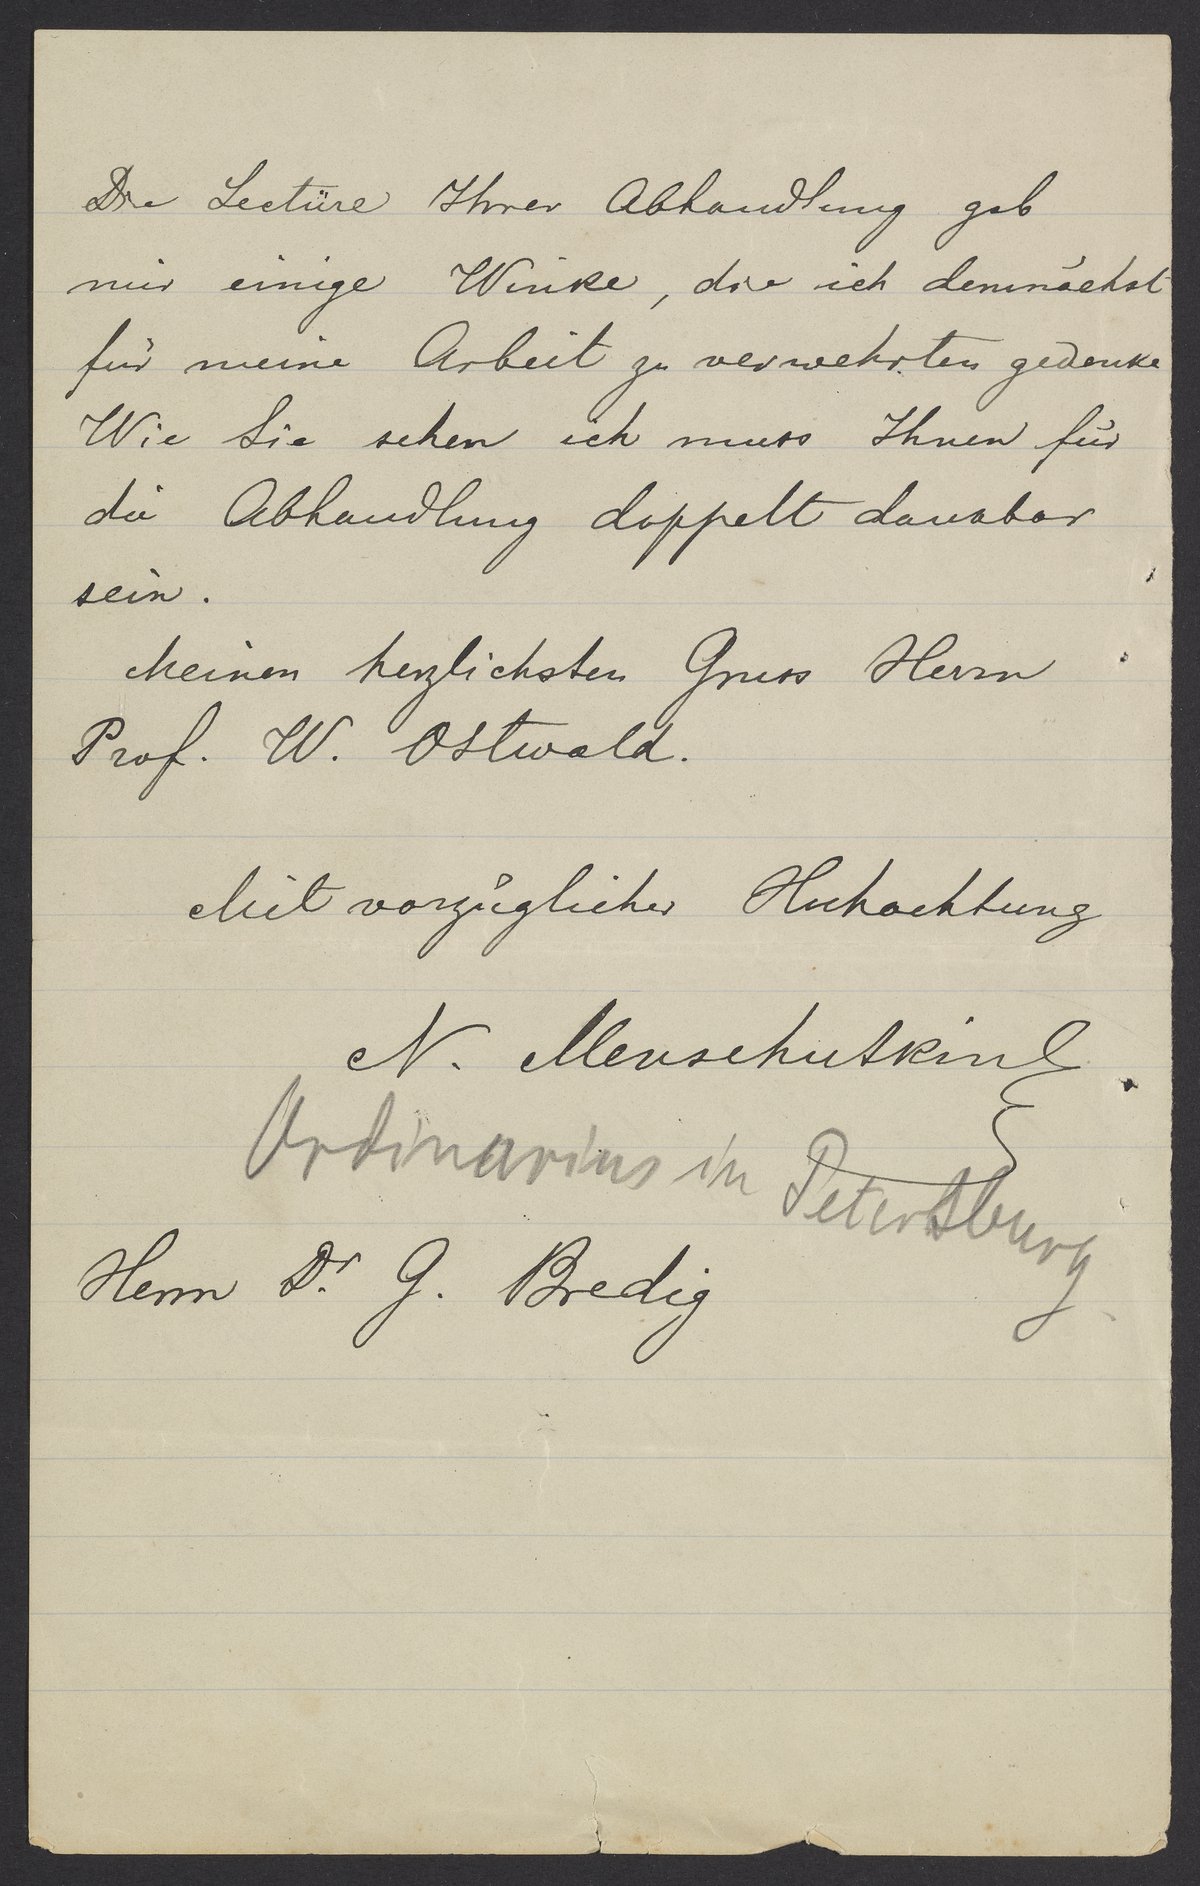 Die Lectüre Ihrer Abhandlung gab
mir einige Winke, die ich demnächst
für meine Arbeit zu verwehrten gedenke
Wie Sie sehen ich muss Ihnen für
die Abhandlung doppelt dankbar
sein.
Meinen herzlichsten Gruss Herrn
Prof. W. Ostwald.
Mit vorzüglicher Hochachtung
N. Menschutkin
Ordinarius in Petersburg
Herrn Dr. G. Bredig